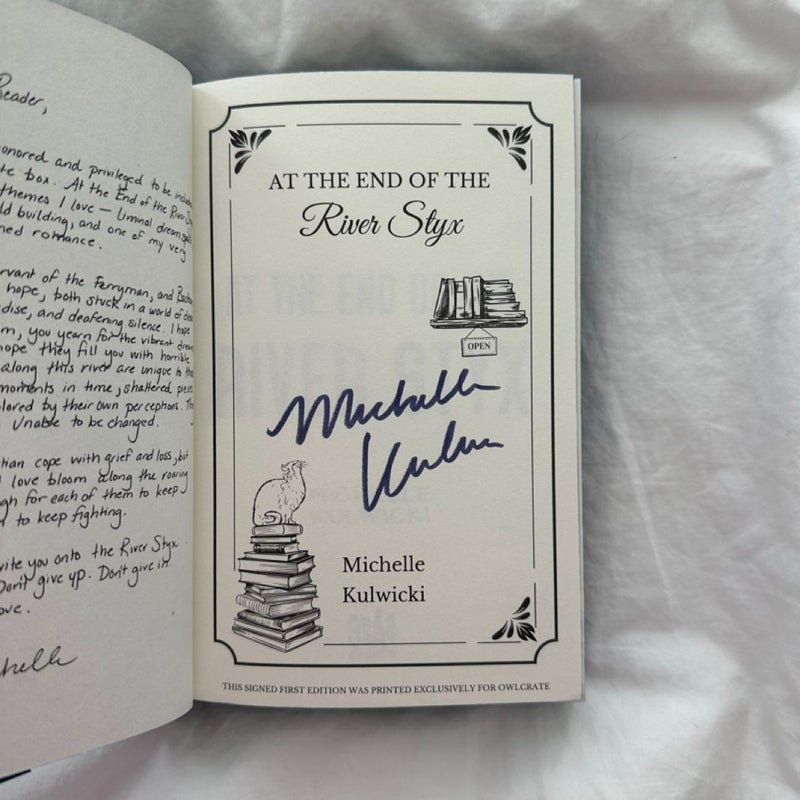 Reader,
onored and privileged to be include
te box. At the End of the River S
themes I love — liminal dream
ld building, and one of my very
ned romance.
rvant of the Ferryman, and
hope, both stuck in a world of
dise, and deafening silence. I hope
m, you yearn for the vibrant
ope they fill you with horrible
along this river are unique to
moments in time, shattered
lored by their own perceptions.
Unable to be changed.
tian cope with grief and loss, but
l love bloom along the roaring
gh for each of them to keep
to keep fighting.
vite you onto the River Styx
Don't give up. Don't give in
ove.
chelle
AT THE END OF THE
River Styx
OPEN
Michelle
Kulwicki
THIS SIGNED FIRST EDITION WAS PRINTED EXCLUSIVELY FOR OWLCRATE